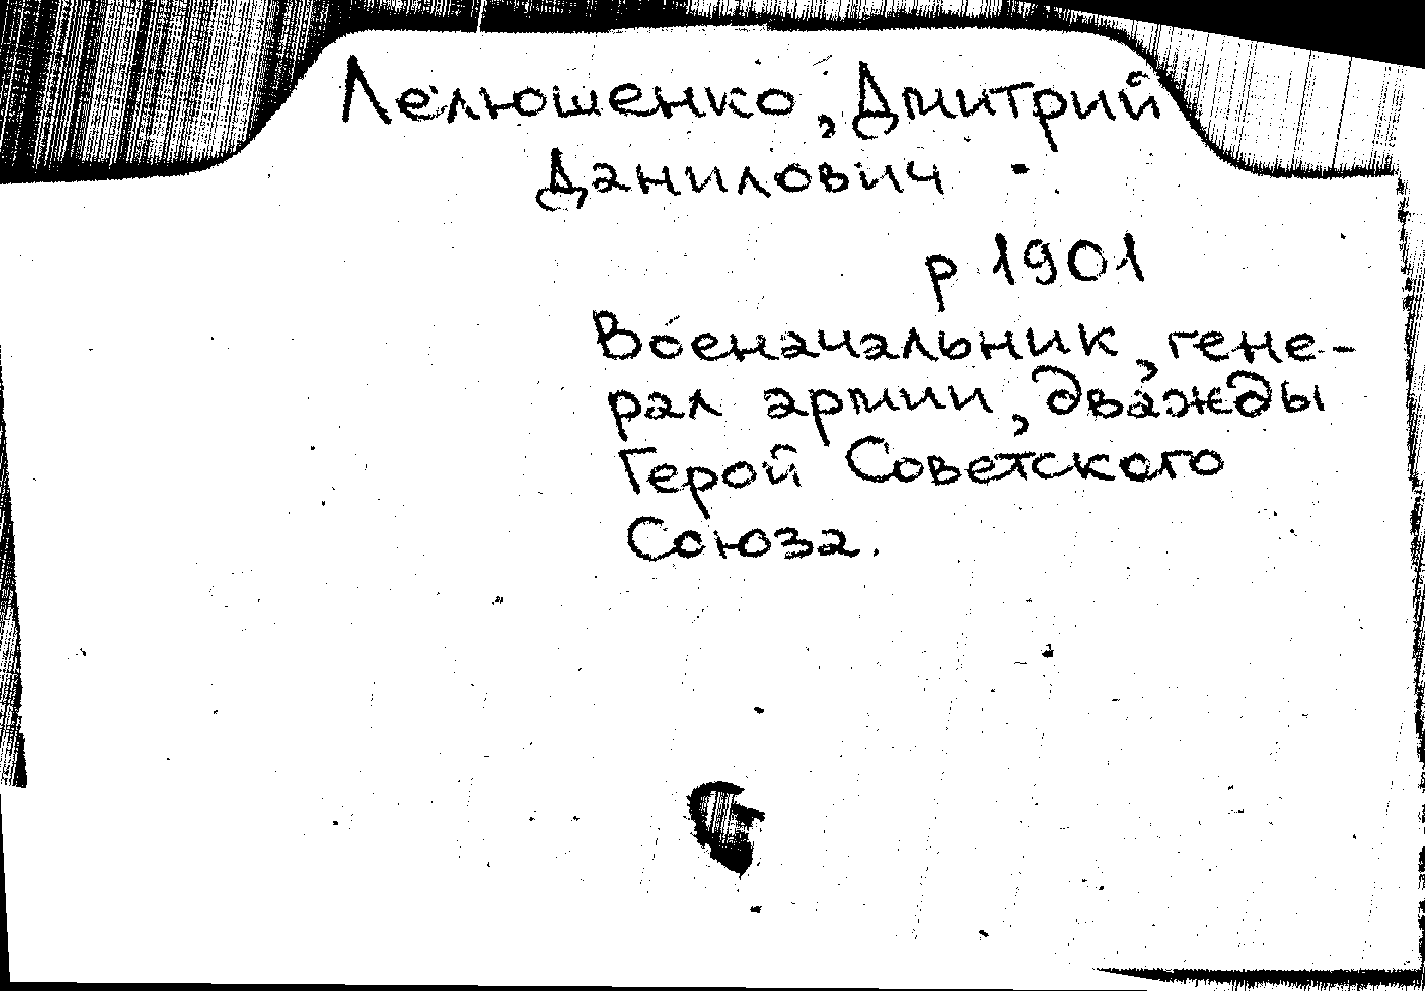 Лелюшенко, Дмитрий
Данилович
р 1901
Военачальник, гене-
рал армии, дважды
Герой Советского
Союза.